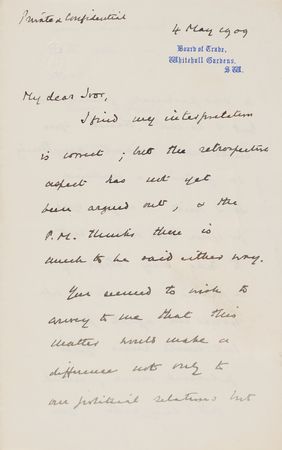 Private & Confidential
4 May 1909
Board of Trade,
Whitehall Gardens,
S.W.
My dear Ivor,
I find my interpretation
is correct; but the retrospective
aspect has not yet
been argued out, & the
P.M. thinks there is
much to be said either way.
You seemed to wish to
convey to me that this
matter would make a
difference not only to
our political relations but